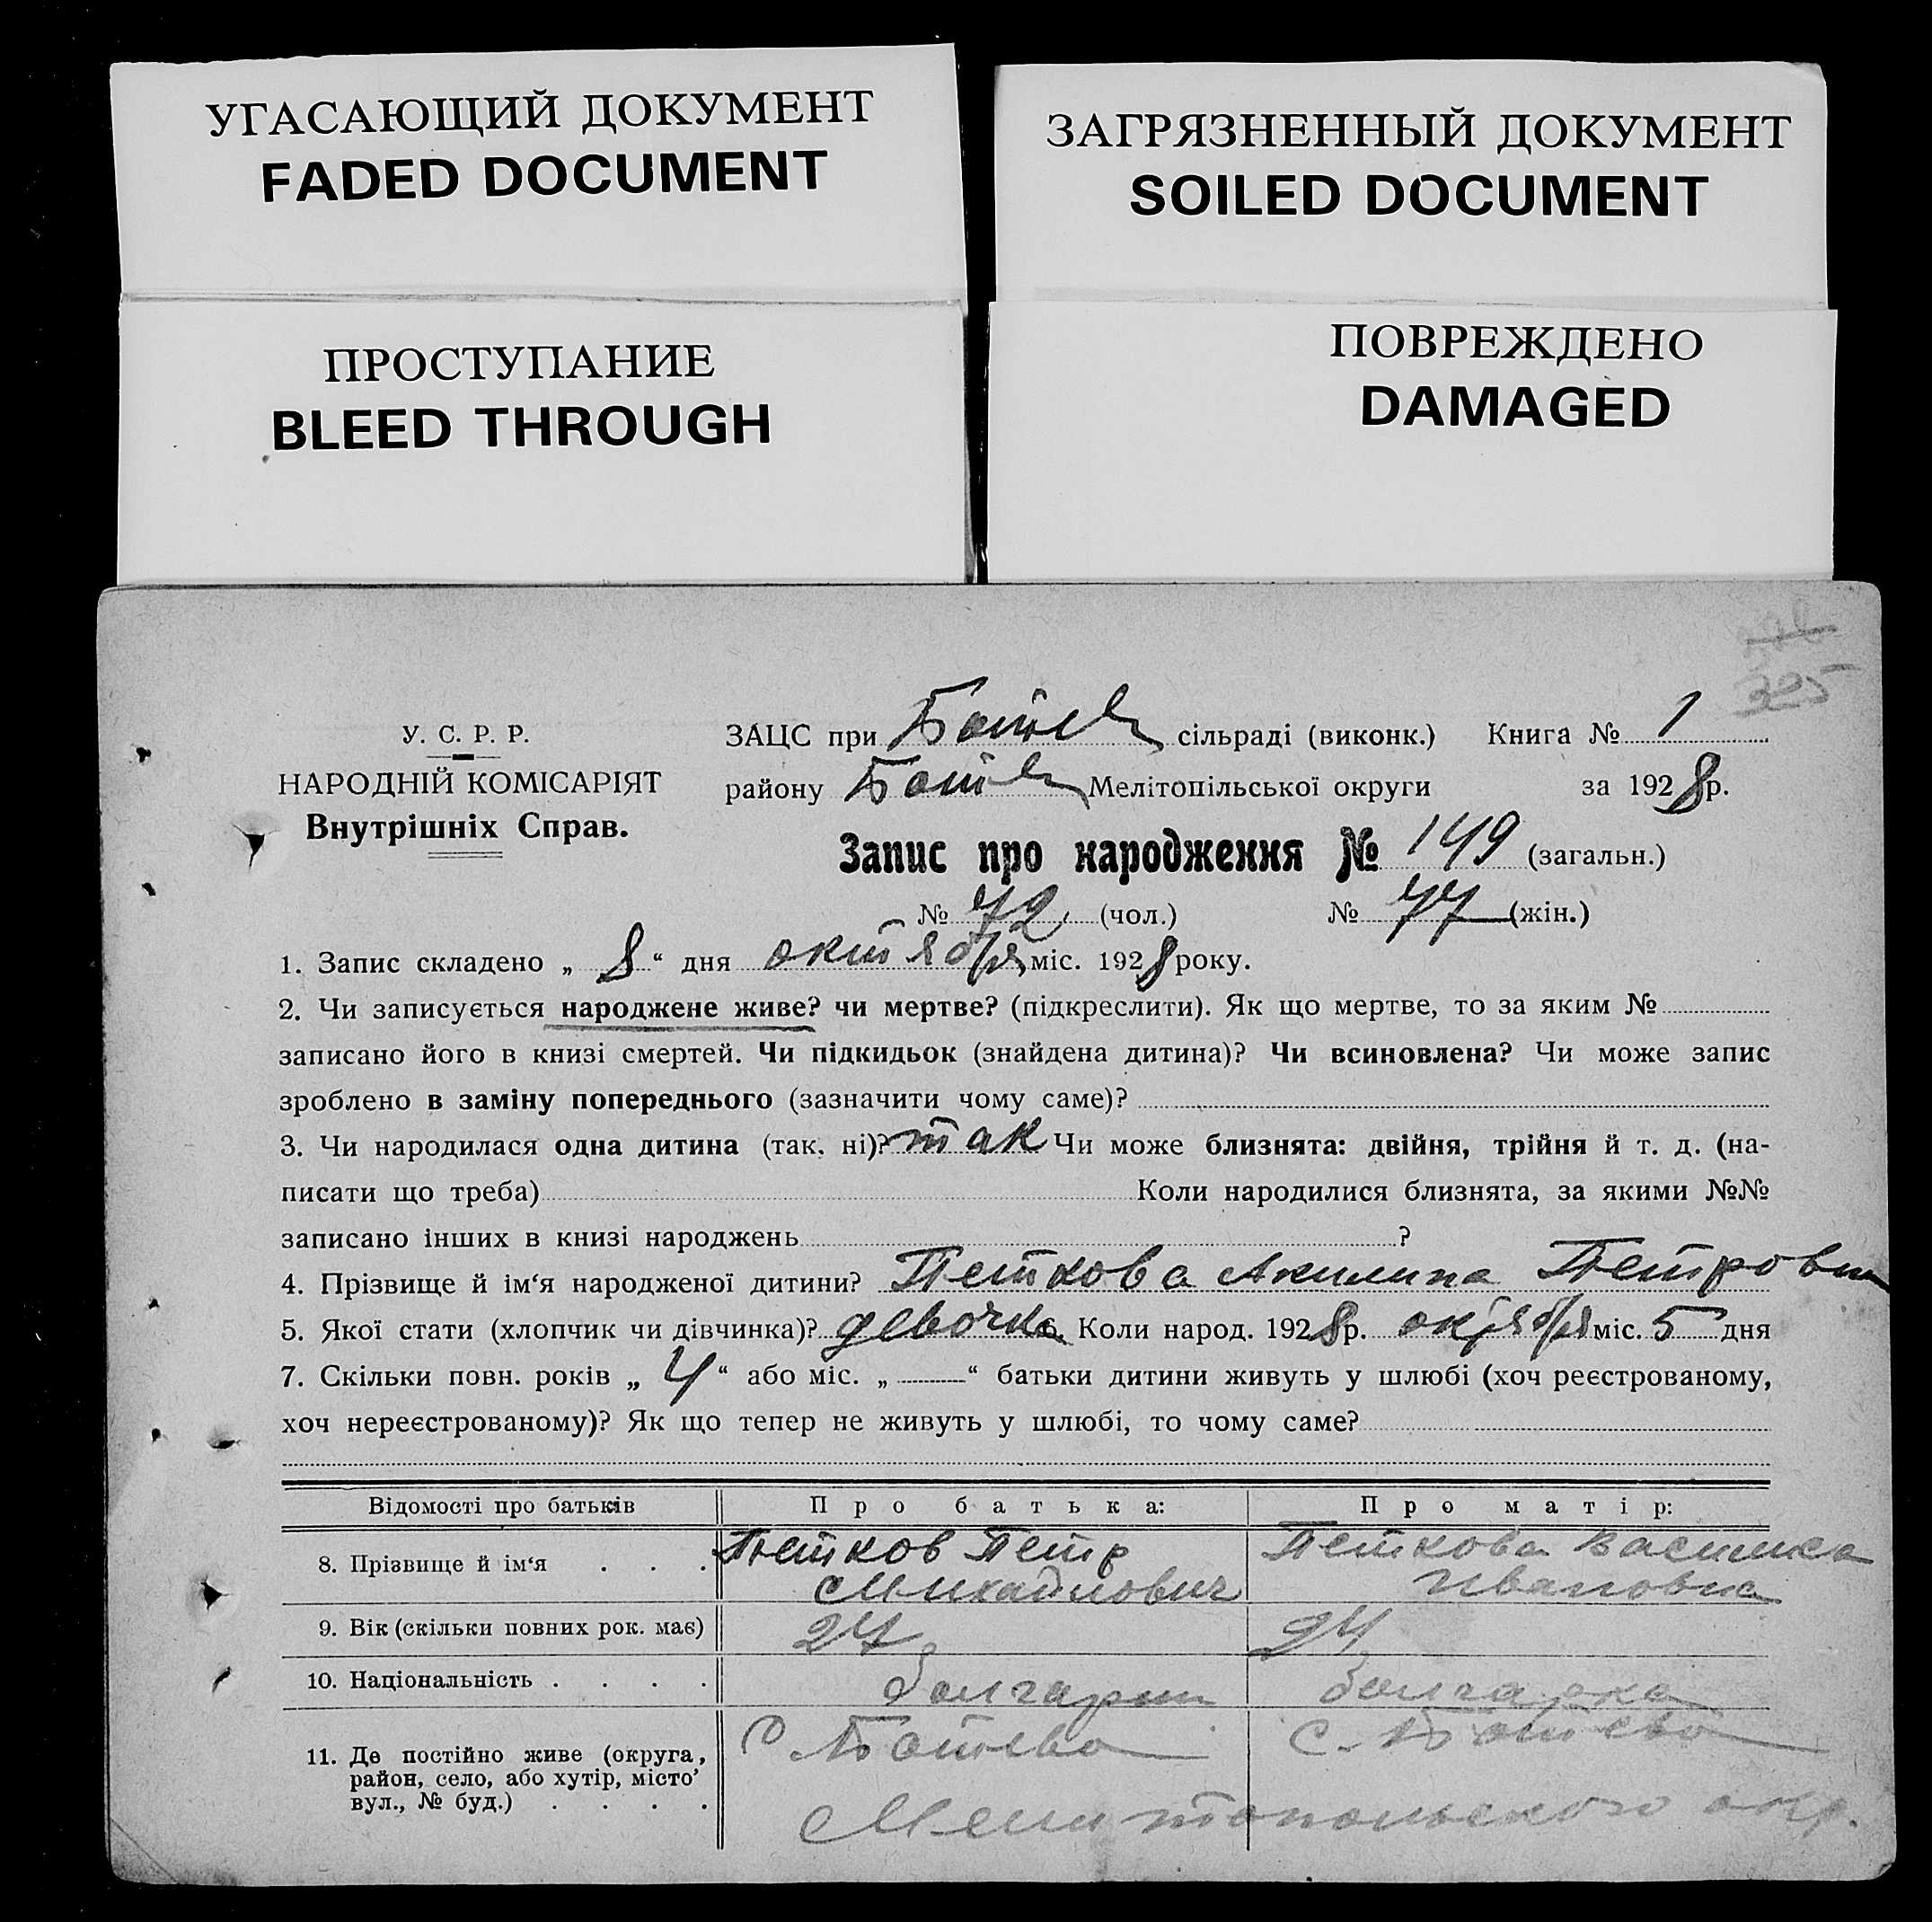 УГАСАЮЩИЙ ДОКУМЕНТ
FADED DOCUMENT
ЗАГРЯЗНЕННЫЙ ДОКУМЕНТ
SOILED DOCUMENT
ПРОСТУПАНИЕ
BLEED THROUGH
ПОВРЕЖДЕНО
DAMAGED
325
У. С. Р. Р.
НАРОДНІЙ КОМІСАРІЯТ
Внутрішніх Справ.
ЗАЦС при Ботіев сільраді (виконк.) Книга № 1
району Ботіев Мелітопільської округи за 1928 р.
Запис про народження № 149 (загальн.)
№ 72 (чол.) № 77 (жін.)
1. Запис складено „ 8 “ дня октября міс. 1928 року.
2. Чи записується народжене живе? чи мертве? (підкреслити). Як що мертве, то за яким №
записано його в книзі смертей. Чи підкидьок (знайдена дитина)? Чи всиновлена? Чи може запис
зроблено в заміну попереднього (зазначити чому саме)?
3. Чи народилася одна дитина (так, ні)? так Чи може близнята: двійня, трійня й т. д. (на-
писати що треба) Коли народилися близнята, за якими №№
записано інших в книзі народжень ?
4. Прізвище й ім‘я народженої дитини? Петкова Акилина Петровна
5. Якої стати (хлопчик чи дівчинка)? девочка 6. Коли народ. 1928 р. октября міс. 5 дня
7. Скільки повн. років „ 4 “ або міс. „ “ батьки дитини живуть у шлюбі (хоч реєстрованому,
хоч нереєстрованому)? Як що тепер не живуть у шлюбі, то чому саме?
Відомості про батьків Про батька: Про матір:
8. Прізвище й ім‘я . . . Петков Петр Михайлович Петкова Василиса Ивановна
9. Вік (скільки повних рок. має) 24 24
10. Національність . . . . болгарин болгарка
11. Де постійно живе (округа, район, село, або хутір, місто, вул., № буд.) . . . . С. Ботиево с. Ботиево
Мелитопольского окр.